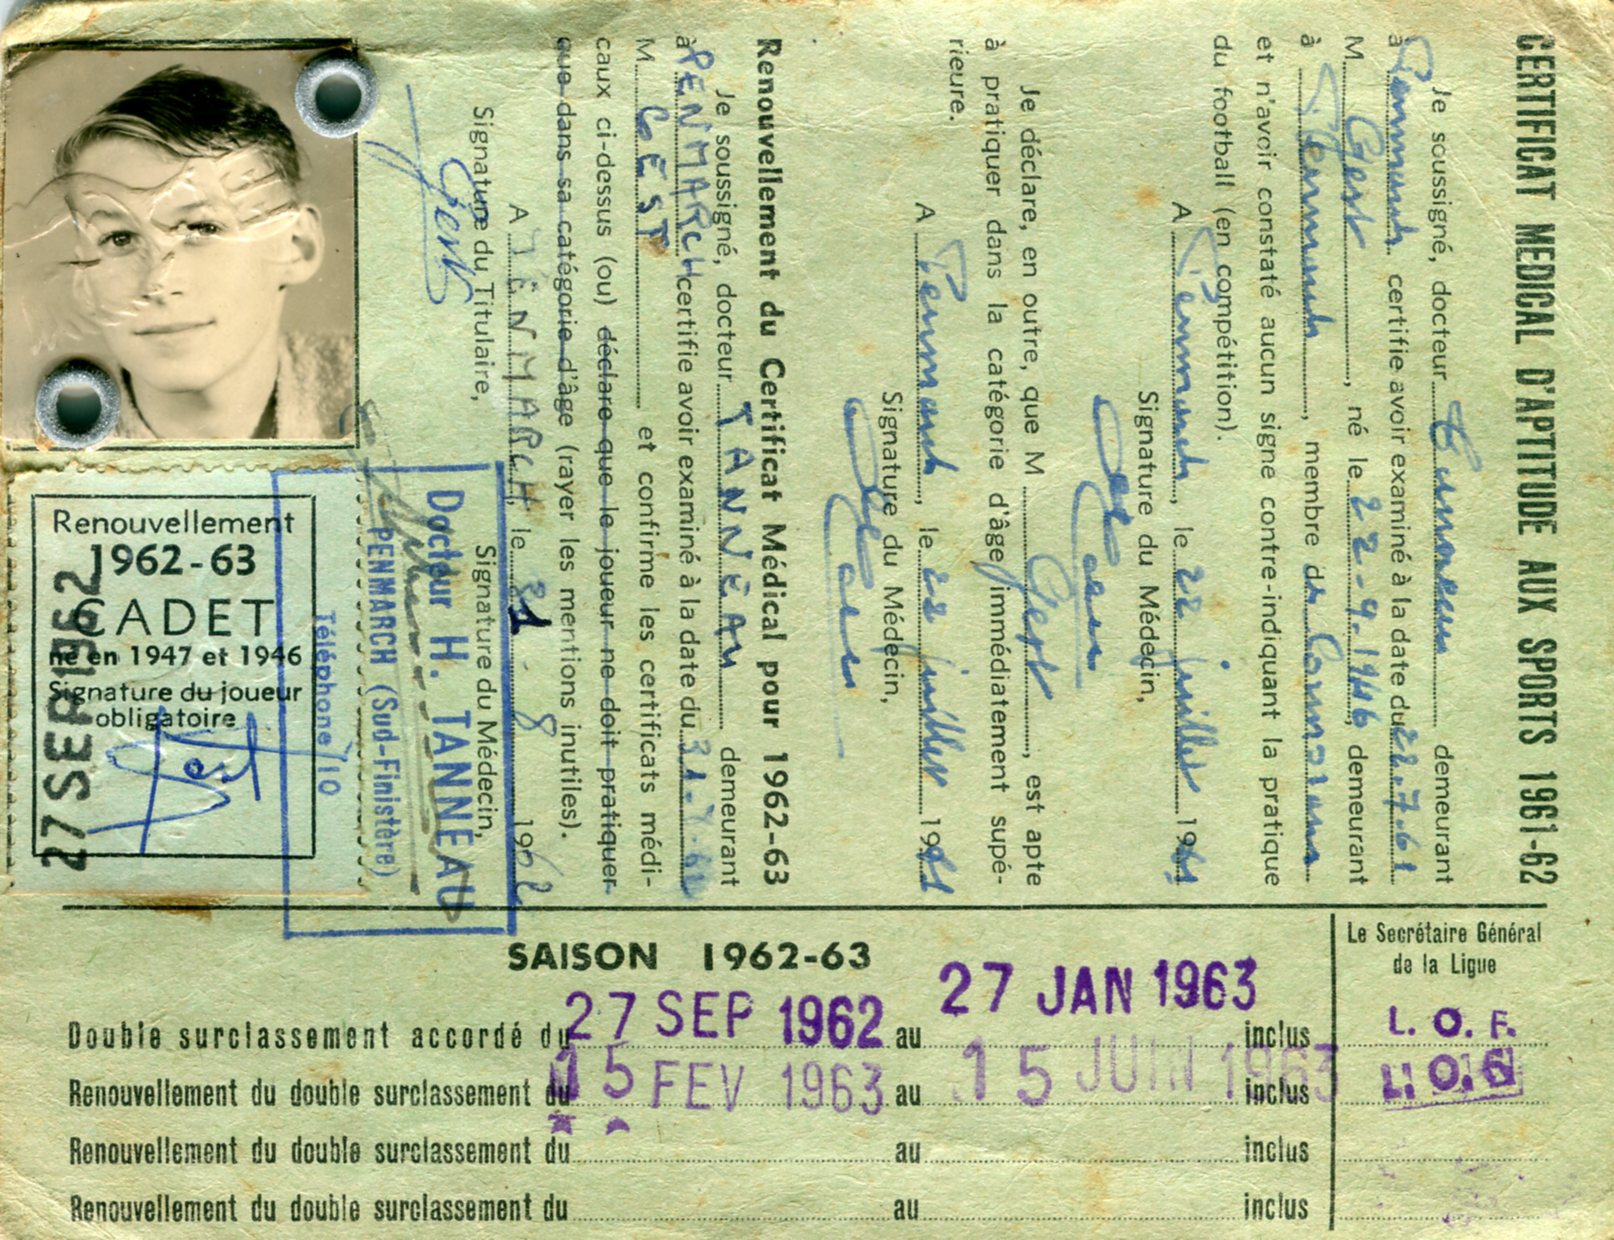 CERTIFICAT MEDICAL D'APTITUDE AUX SPORTS 1961-62
Je soussigné, docteur Tanneau demeurant
à Penmarch certifie avoir examiné à la date du 22.7.61
M. Gest, né le 22-9-1946, demeurant
à Penmarch, membre de Cormorans
et n'avoir constaté aucun signe contre-indiquant la pratique
du football (en compétition).
A Penmarch, le 22 juillet 1961
Signature du Médecin,
Je déclare, en outre, que M Gest, est apte
à pratiquer dans la catégorie d'âge immédiatement supé-
rieure.
A Penmarch, le 22 juillet 1961
Signature du Médecin,
Renouvellement du Certificat Médical pour 1962-63
Je soussigné, docteur TANNEAU demeurant
à PENMARCH certifie avoir examiné à la date du
M. GEST et confirme les certificats médi-
caux ci-dessus (ou) déclare que le joueur ne doit pratiquer
que dans sa catégorie d'âge (rayer les mentions inutiles).
A PENMARCH, le 31 8 1962
Signature du Titulaire,
Signature du Médecin,
Gest
Docteur H. TANNEAU
PENMARCH (Sud-Finistère)
Téléphone 10
Renouvellement
1962-63
CADET
né en 1947 et 1946
Signature du joueur
obligatoire
Gest
27 SEP 1962
SAISON 1962-63
Le Secrétaire Général
de la Ligue
Double surclassement accordé du 27 SEP 1962 au 27 JAN 1963 inclus L. O. F.
Renouvellement du double surclassement du 15 FEV 1963 au 15 JUIN 1963 inclus
Renouvellement du double surclassement du au inclus
Renouvellement du double surclassement du au inclus